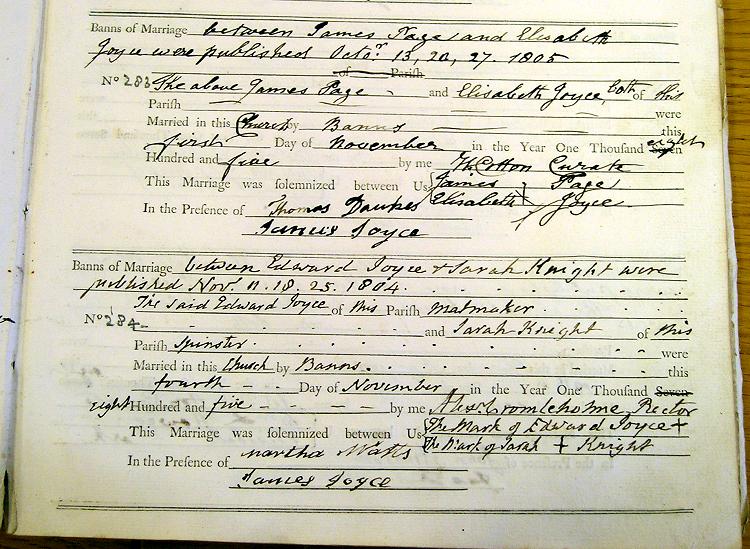 Banns of Marriage between James Page and Elisabeth
Joyce were published Octo.r 13, 20, 27. 1805
of Parish
No 283 The above James Page - and Elisabeth Joyce, both of this
Parish were
Married in this Church by Banns this
first Day of November in the Year One Thousand Seven eight
Hundred and five by me Th. Cotton Curate
This Marriage was solemnized between Us James Page
In the Presence of Thomas Dawkes Elisabeth Joyce
James Joyce
Banns of Marriage between Edward Joyce & Sarah Knight were
published Nov.r 11. 18. 25. 1804.
The said Edward Joyce of this Parish Matmaker
No 284 and Sarah Knight of this
Parish Spinster were
Married in this Church by Banns this
fourth Day of November in the Year One Thousand Seven
eight Hundred and five by me Alex.r Cromleholme Rector
This Marriage was solemnized between Us The Mark of Edward Joyce +
The Mark of Sarah + Knight
In the Presence of Martha Watts
James Joyce